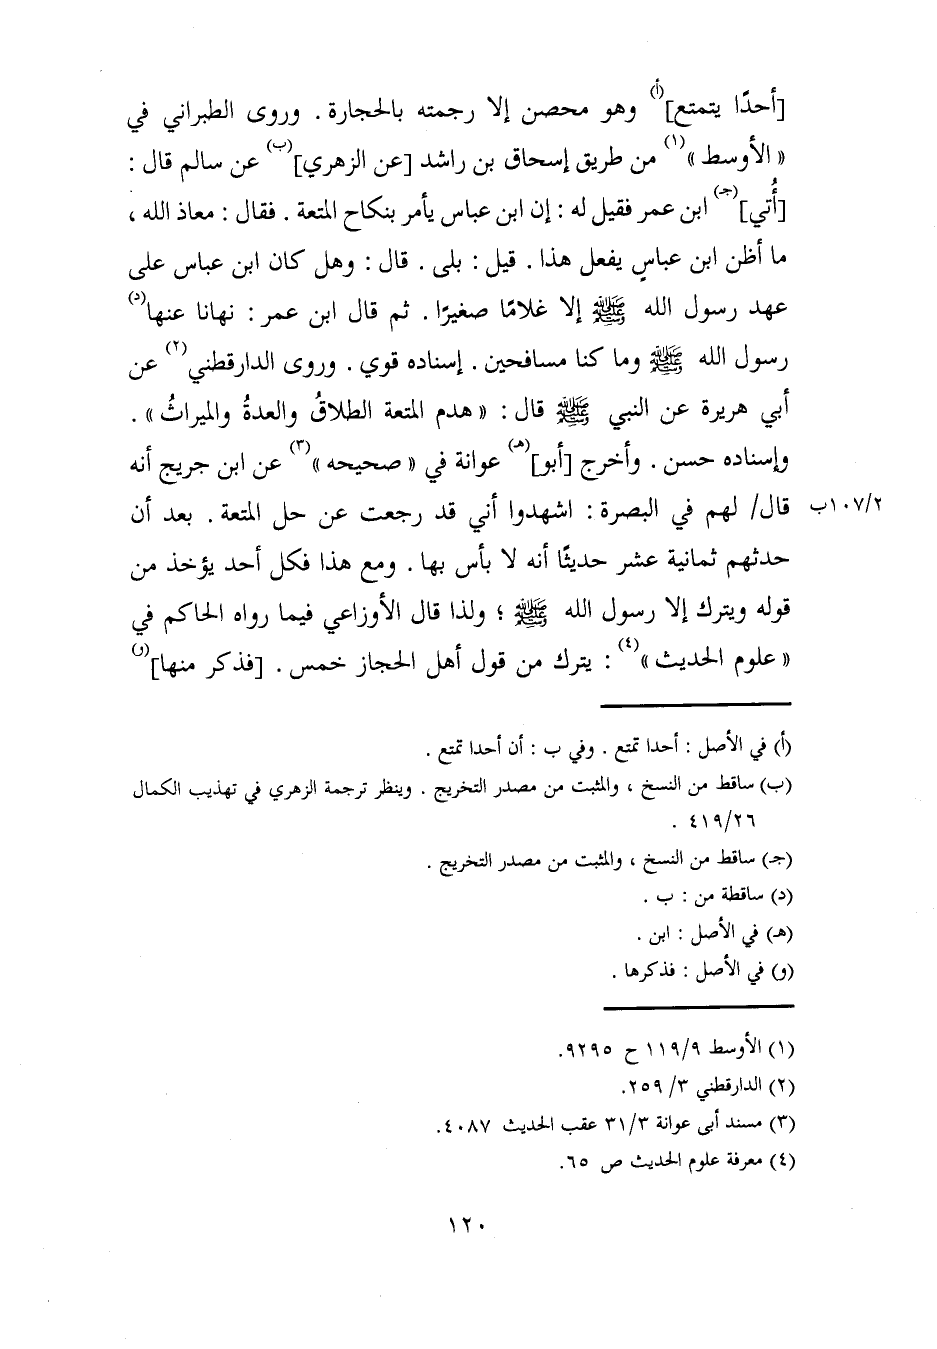 [أحدًا يتمتع]⁽أ⁾ وهو محصن إلا رجمته بالحجارة . وروى الطبراني في
« الأوسط »⁽١⁾ من طريق إسحاق بن راشد [عن الزهري]⁽ب⁾ عن سالم قال :
[أُتي]⁽جـ⁾ ابن عمر فقيل له : إن ابن عباس يأمر بنكاح المتعة . فقال : معاذ الله ،
ما أظن ابن عباسٍ يفعل هذا . قيل : بلى . قال : وهل كان ابن عباس على
عهد رسول الله ﷺ إلا غلامًا صغيرًا . ثم قال ابن عمر : نهانا عنها⁽د⁾
رسول الله ﷺ وما كنا مسافحين . إسناده قوي . وروى الدارقطني⁽٢⁾ عن
أبي هريرة عن النبي ﷺ قال : « هدم المتعة الطلاقُ والعدةُ والميراثُ » .
وإسناده حسن . وأخرج [أبو]⁽هـ⁾ عوانة في « صحيحه »⁽٣⁾ عن ابن جريج أنه
١٠٧/٢ب قال/ لهم في البصرة : اشهدوا أني قد رجعت عن حل المتعة . بعد أن
حدثهم ثمانية عشر حديثًا أنه لا بأس بها . ومع هذا فكل أحد يؤخذ من
قوله ويترك إلا رسول الله ﷺ ؛ ولذا قال الأوزاعي فيما رواه الحاكم في
« علوم الحديث »⁽٤⁾ : يترك من قول أهل الحجاز خمس . [فذكر منها]⁽و⁾
(أ) في الأصل : أحدا تمتع . وفي ب : أن أحدا تمتع .
(ب) ساقط من النسخ ، والمثبت من مصدر التخريج . وينظر ترجمة الزهري في تهذيب الكمال
٤١٩/٢٦ .
(جـ) ساقط من النسخ ، والمثبت من مصدر التخريج .
(د) ساقطة من : ب .
(هـ) في الأصل : ابن .
(و) في الأصل : فذكرها .
(١) الأوسط ١١٩/٩ ح ٩٢٩٥.
(٢) الدارقطني ٣/ ٢٥٩.
(٣) مسند أبى عوانة ٣١/٣ عقب الحديث ٤٠٨٧.
(٤) معرفة علوم الحديث ص ٦٥.
١٢٠